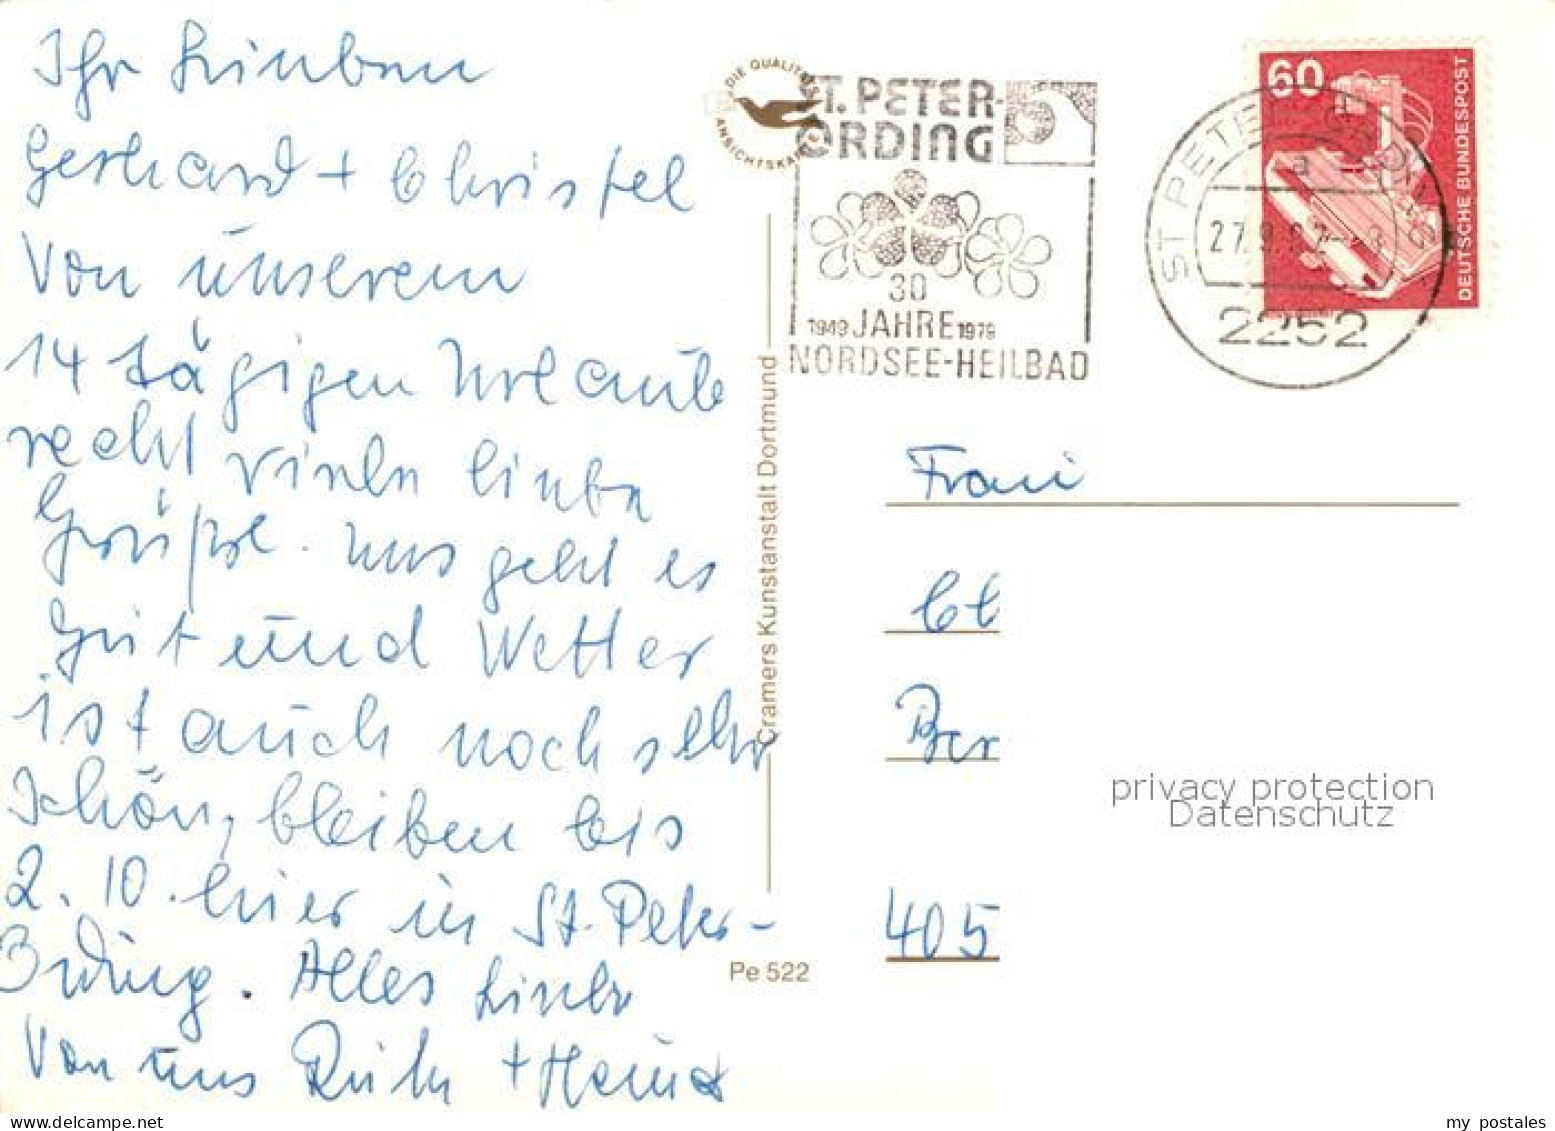 Ihr Lieben
Gerhard + Christel
Von unserem
14 tägigen Urlaub
recht viele liebe
Grüße. Uns geht es
gut und Wetter
ist auch noch sehr
schön, bleiben bis
2.10. hier in St. Peter-
Ording. Alles Liebe
Von uns Ruth + Heinz
DIE QUALITÄTS
ANSICHTSKARTE
ST. PETER-
ORDING
30
1949 JAHRE 1979
NORDSEE-HEILBAD
ST PETER-ORDING
a
27.9.82
2252
60
DEUTSCHE BUNDESPOST
Cramers Kunstanstalt Dortmund
Pe 522
Frau
Ber
405
privacy protection
Datenschutz
my postales